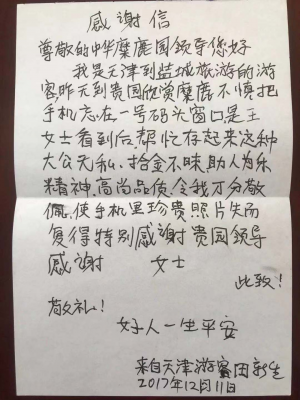 感谢信
尊敬的中华麋鹿园领导您好
我是天津到盐城旅游的游
客,昨天到贵园欣赏麋鹿不慎把
手机忘在一号码头窗口是王
女士看到后,帮忙存起来这种
大公无私、拾金不昧,助人为乐
精神,高尚品质,令我十分敬
佩,使手机里珍贵照片失而
复得特别感谢贵园领导
感谢 女士
此致!
敬礼!
好人一生平安
来自天津游客田新生
2017年12月11日